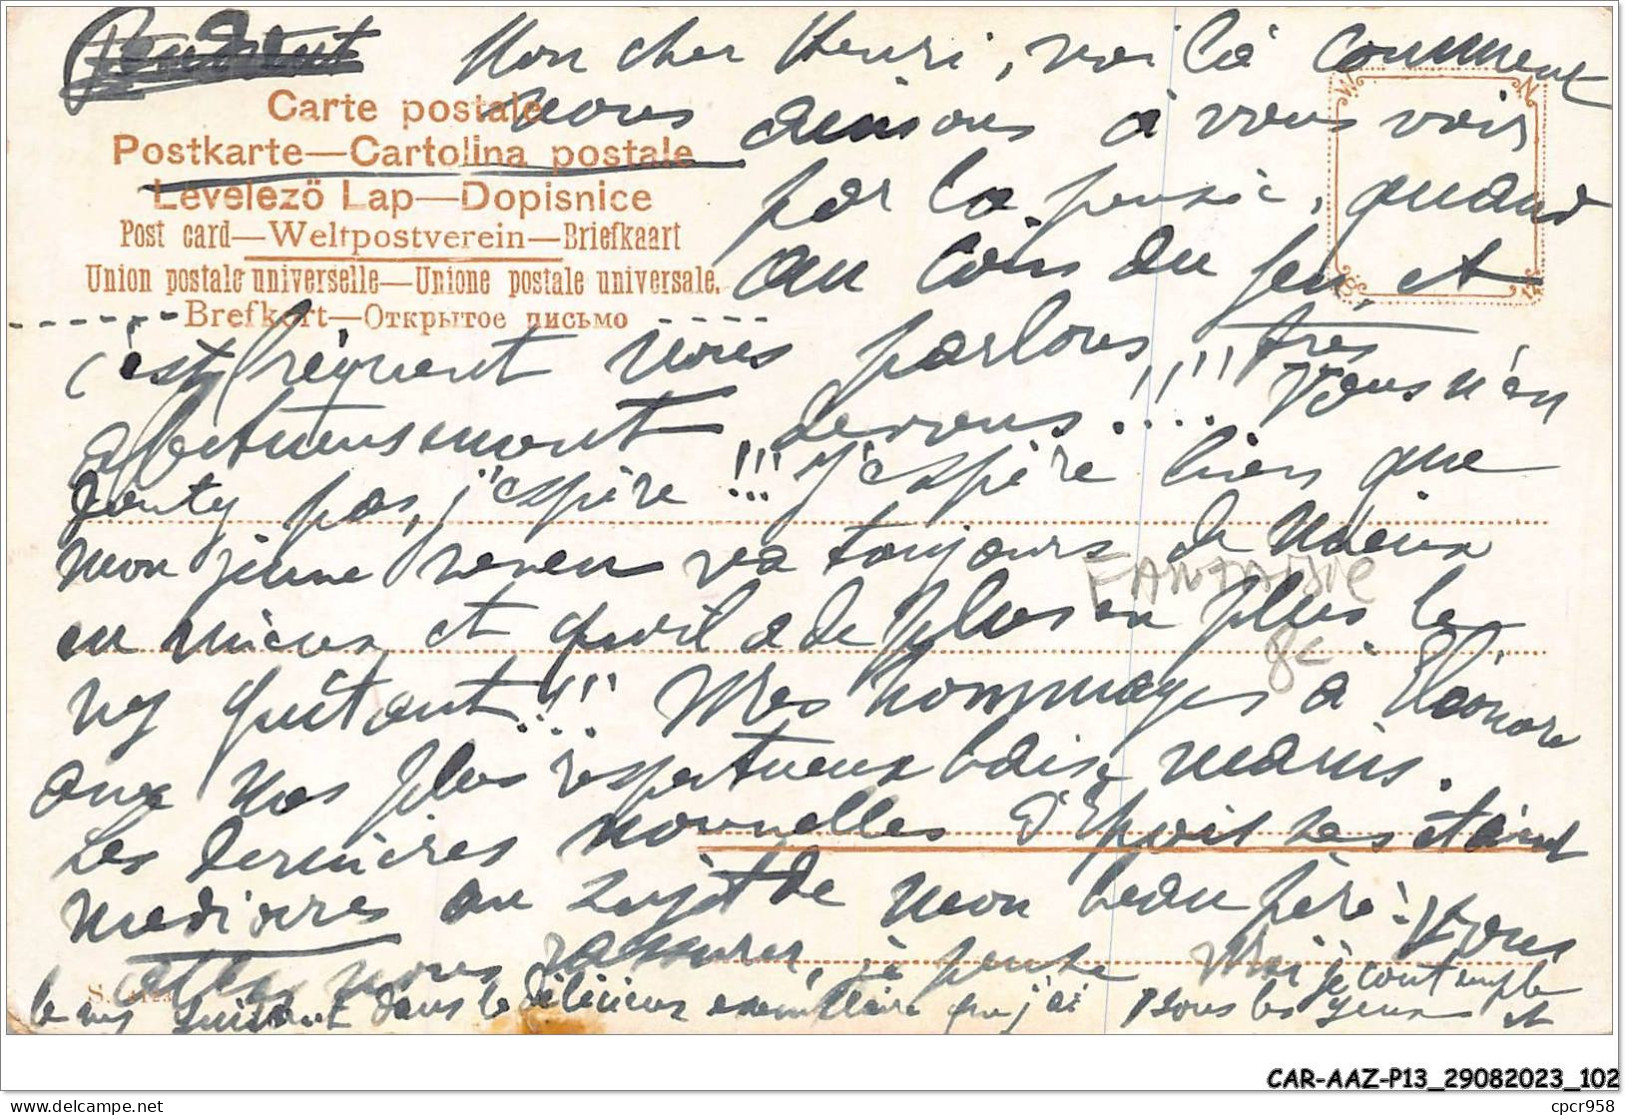 Mon cher Henri, voilà comment
Carte postale
nous aimons à vous voir
Postkarte—Cartolina postale
Levelező Lap—Dopisnice
par la pensée, quand
Post card—Weltpostverein—Briefkaart
au coin du feu, et
Union postale universelle—Unione postale universale.
Brefkort—Открытое письмо
c'est fréquent nous parlons, très
affectueusement, de vous !!!! Vous n'en
doutez pas, j'espère !!! J'espère bien que
mon jeune neveu va toujours de mieux
FANTAISIE
en mieux et qu'il a de plus en plus le
8c
nez quittant !!! Mes hommages à Eléonore
avec mes plus respectueux baise mains.
Les dernières nouvelles d'Epoisses étaient
médiocres au sujet de mon beau père. Vous
allez nous rassurer, je pense Moi je contemple
le ms suivant dans le délicieux exemplaire que j'ai sous les yeux et
CAR-AAZ-P13_29082023_102
delcampe.net
cpcr958